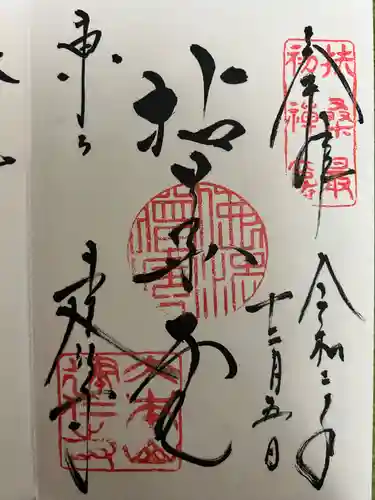 奉拝
扶桑最
初禪窟
令和二年
十二月五日
拈華堂
東山
建仁禅寺